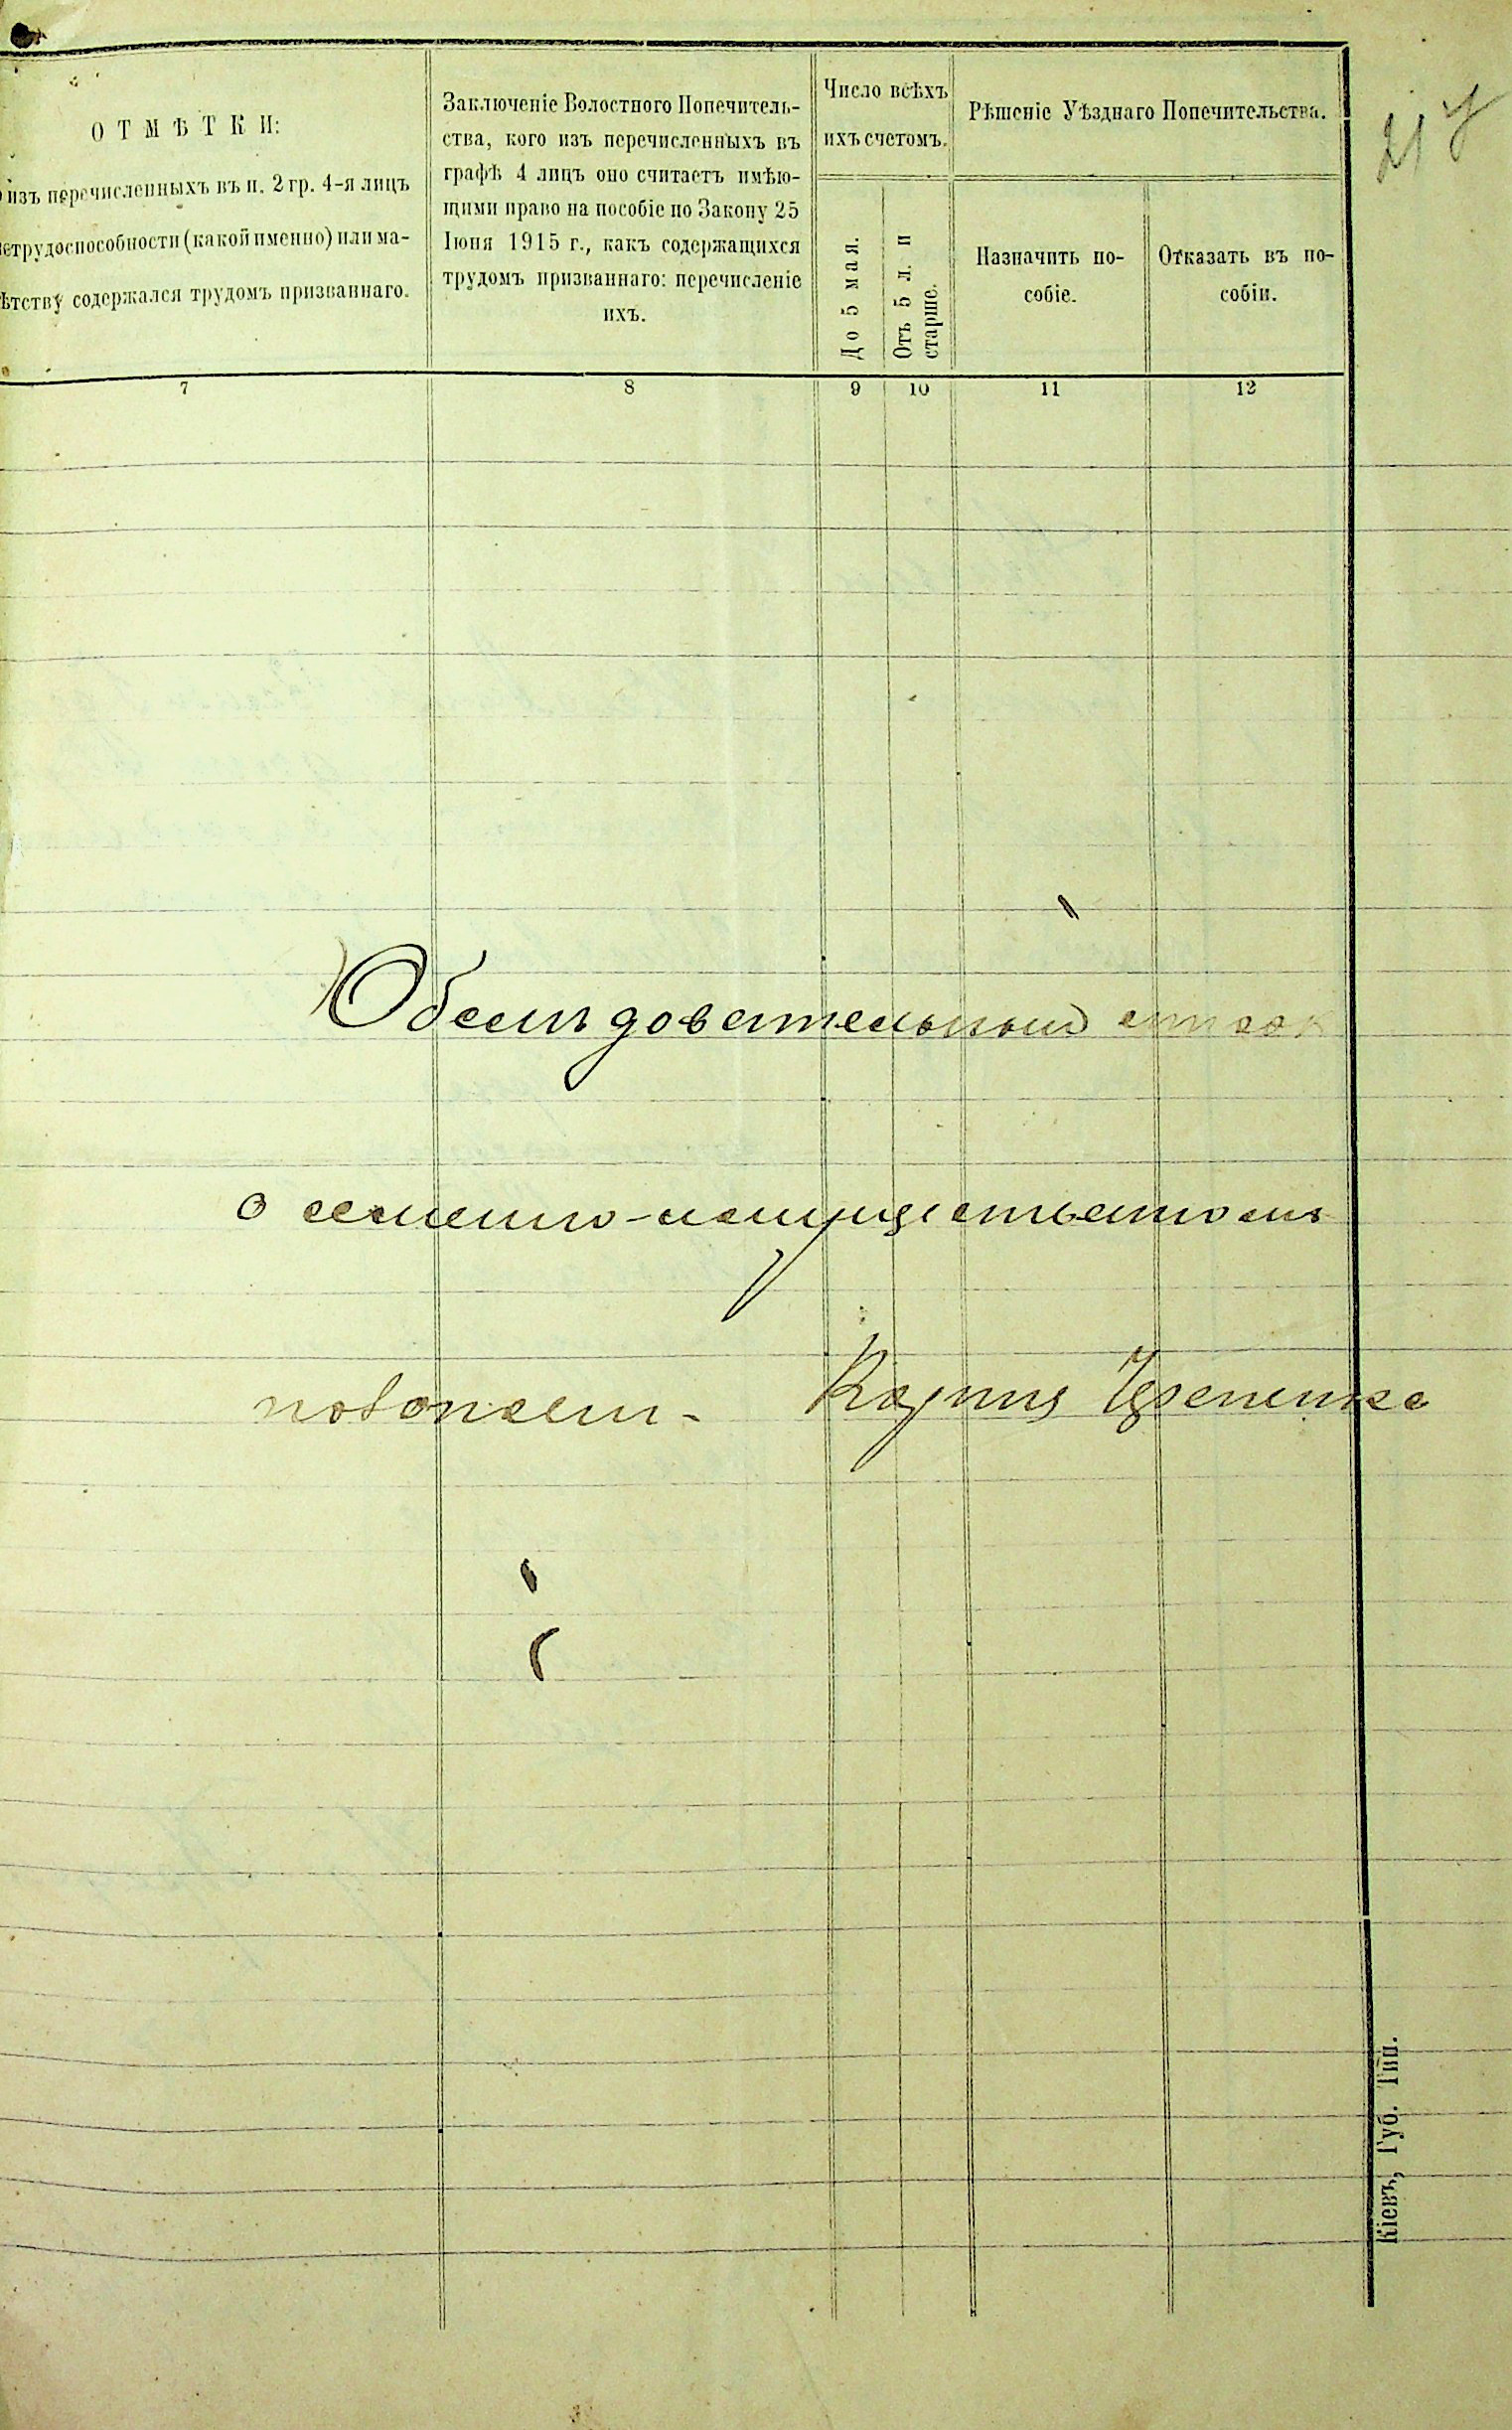 ОТМѢТКИ:
изъ перечисленныхъ въ п. 2 гр. 4-я лицъ
нетрудоспособности (какой именно) или ма-
ѣтству содержался трудомъ призваннаго.
Заключеніе Волостного Попечитель-
ства, кого изъ перечисленныхъ въ
графѣ 4 лицъ оно считаетъ имѣю-
щими право на пособіе по Закону 25
Іюня 1915 г., какъ содержащихся
трудомъ призваннаго: перечисленіе
ихъ.
Число всѣхъ
ихъ счетомъ.
До 5 мая.
Отъ 5 л. и
старше.
Рѣшеніе Уѣзднаго Попечительства.
Назначить по-
собіе.
Отказать въ по-
собіи.
7 8 9 10 11 12
Обслѣдовательный список
о семейно-имущественномъ
Карпа
Кіевъ, Губ. Тип.